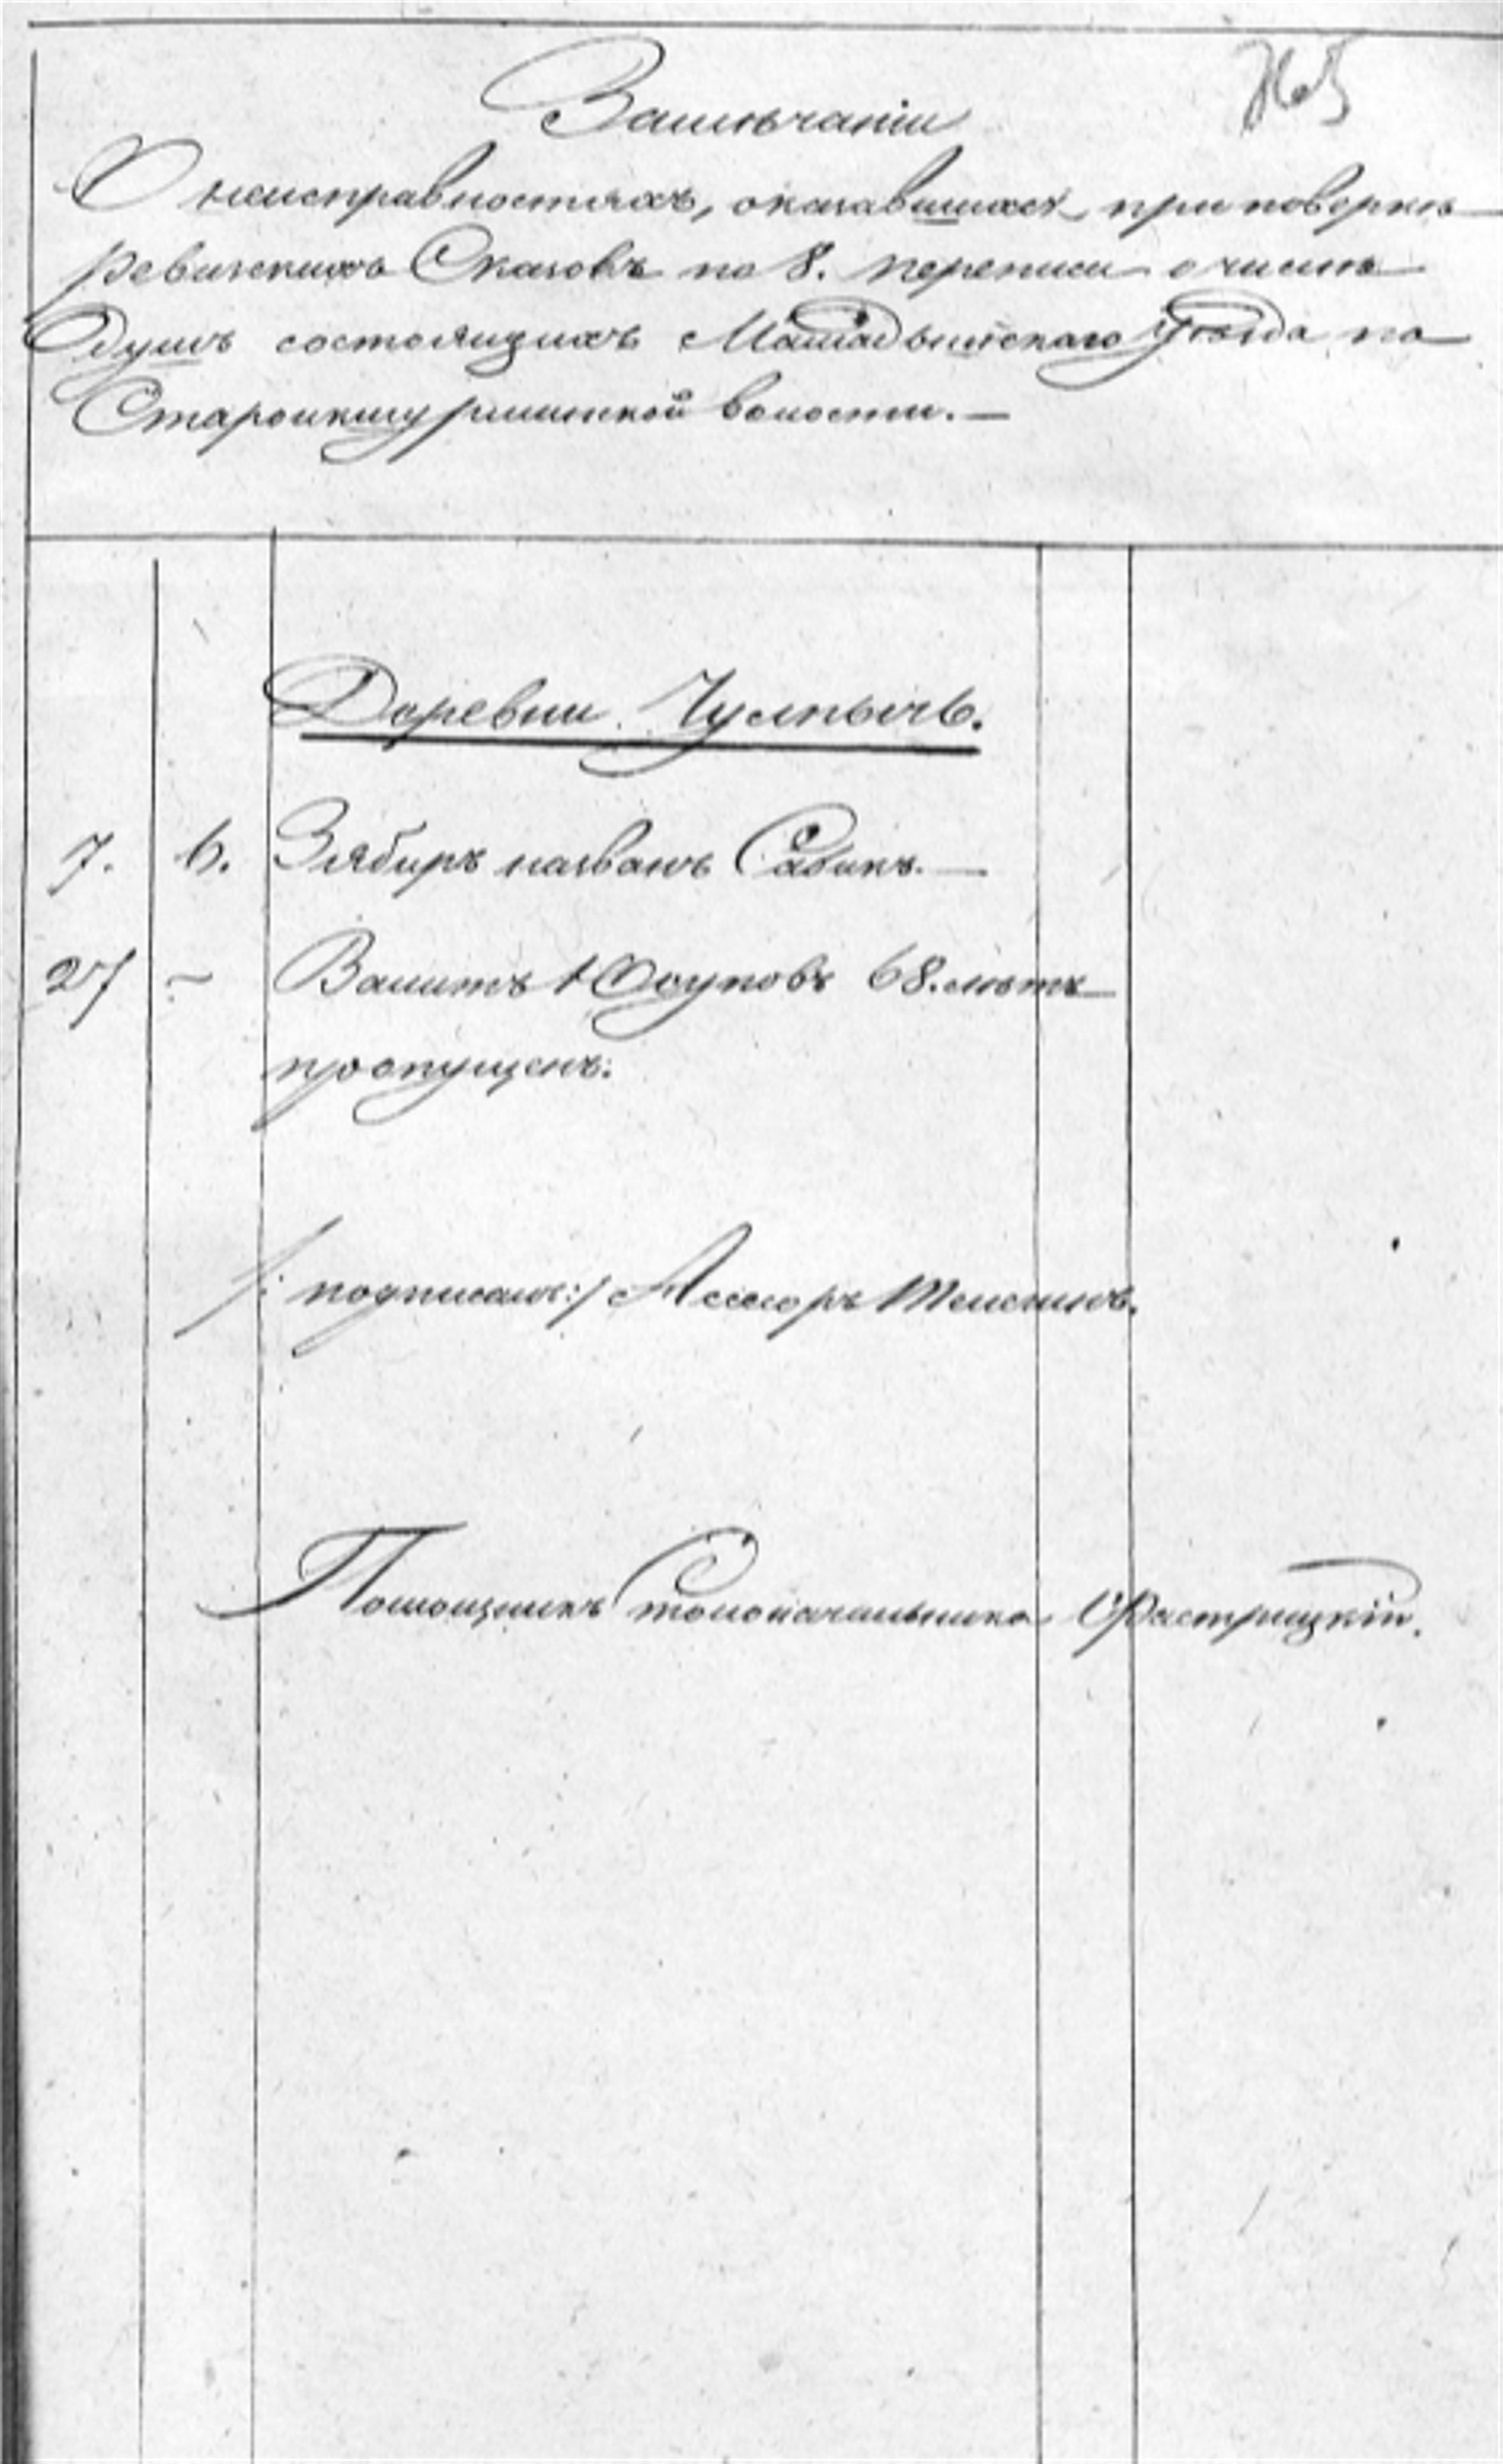 Замѣчанія
О неисправностяхъ, оказавшихся при повѣркѣ
ревизскихъ Сказокъ по 8. переписи о числѣ
душъ состоящихъ Мамадышскаго Уѣзда по
Староикшурминской волости.—
Деревни Чулпычь.
7. 6. Зябиръ названъ Сабикъ.—
27 ~ Валитъ Юсуповъ 68. лѣтъ
пропущенъ.
/: подписалъ:/ Асессоръ
Помощникъ Столоначальника